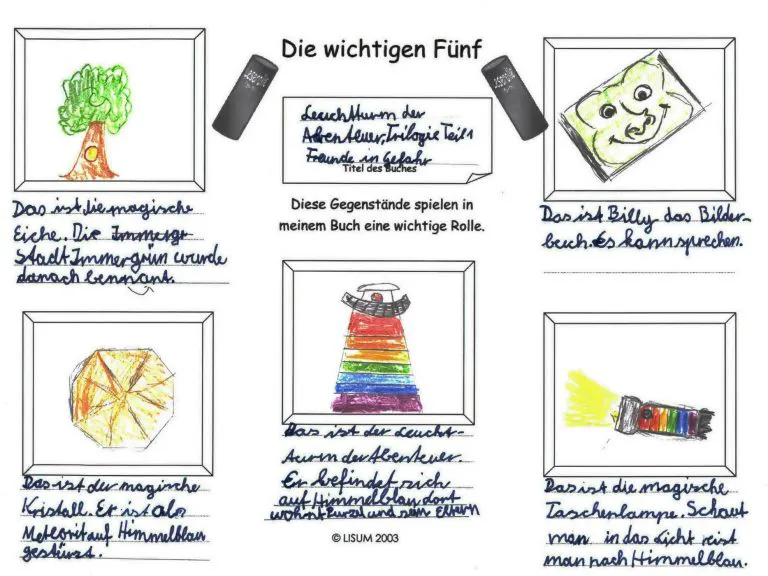 Die wichtigen Fünf
Leuchtturm der
Abenteuer, Trilogie Teil 1
Freunde in Gefahr
Titel des Buches
Diese Gegenstände spielen in
meinem Buch eine wichtige Rolle.
Das ist die magische
Eiche. Die Immergr
Stadt Immergrün wurde
danach bennant.
Das ist Billy das Bilder-
buch. Es kann sprechen.
Das ist der magische
Kristall. Er ist als
Meteorit auf Himmelblau
gestürzt.
Das ist der Leucht-
turm der Abenteuer.
Er befindet sich
auf Himmelblau dort
wohnt Purzel und sein Eltern
Das ist die magische
Taschenlampe. Schaut
man in das Licht reist
man nach Himmelblau.
© LISUM 2003